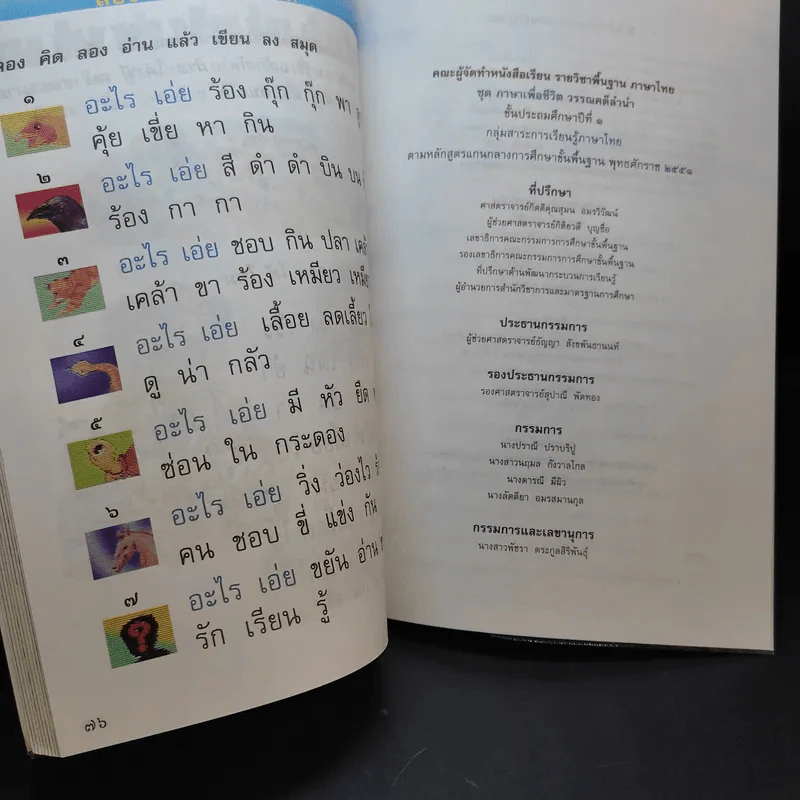 ลอง คิด ลอง อ่าน แล้ว เขียน ลง สมุด
๑
อะไร เอ่ย ร้อง กุ๊ก กุ๊ก พา
คุ้ย เขี่ย หา กิน
๒
อะไร เอ่ย สี ดำ ดำ บิน บน
ร้อง กา กา
๓
อะไร เอ่ย ชอบ กิน ปลา
เคล้า ขา ร้อง เหมียว
๔
อะไร เอ่ย เลื้อย ลดเลี้ยว
ดู น่า กลัว
๕
อะไร เอ่ย มี หัว ยืด
ซ่อน ใน กระดอง
๖
อะไร เอ่ย วิ่ง ว่องไว
คน ชอบ ขี่ แข่ง กัน
๗
อะไร เอ่ย ขยัน อ่าน
รัก เรียน รู้
๗๖
คณะผู้จัดทำหนังสือเรียน รายวิชาพื้นฐาน ภาษาไทย
ชุด ภาษาเพื่อชีวิต วรรณคดีลำนำ
ชั้นประถมศึกษาปีที่ ๑
กลุ่มสาระการเรียนรู้ภาษาไทย
ตามหลักสูตรแกนกลางการศึกษาขั้นพื้นฐาน พุทธศักราช ๒๕๕๑
ที่ปรึกษา
ศาสตราจารย์กิตติคุณสุมน อมรวิวัฒน์
ผู้ช่วยศาสตราจารย์กิติยวดี บุญซื่อ
เลขาธิการคณะกรรมการการศึกษาขั้นพื้นฐาน
รองเลขาธิการคณะกรรมการการศึกษาขั้นพื้นฐาน
ที่ปรึกษาด้านพัฒนากระบวนการเรียนรู้
ผู้อำนวยการสำนักวิชาการและมาตรฐานการศึกษา
ประธานกรรมการ
ผู้ช่วยศาสตราจารย์ธัญญา สังขพันธานนท์
รองประธานกรรมการ
รองศาสตราจารย์สุปาณี พัดทอง
กรรมการ
นางปราณี ปราบริปู
นางสาวนฤมล กังวาลไกล
นางดารณี มีผิว
นางลัดดิยา อมรสมานกุล
กรรมการและเลขานุการ
นางสาวพัชรา ตระกูลสิริพันธุ์